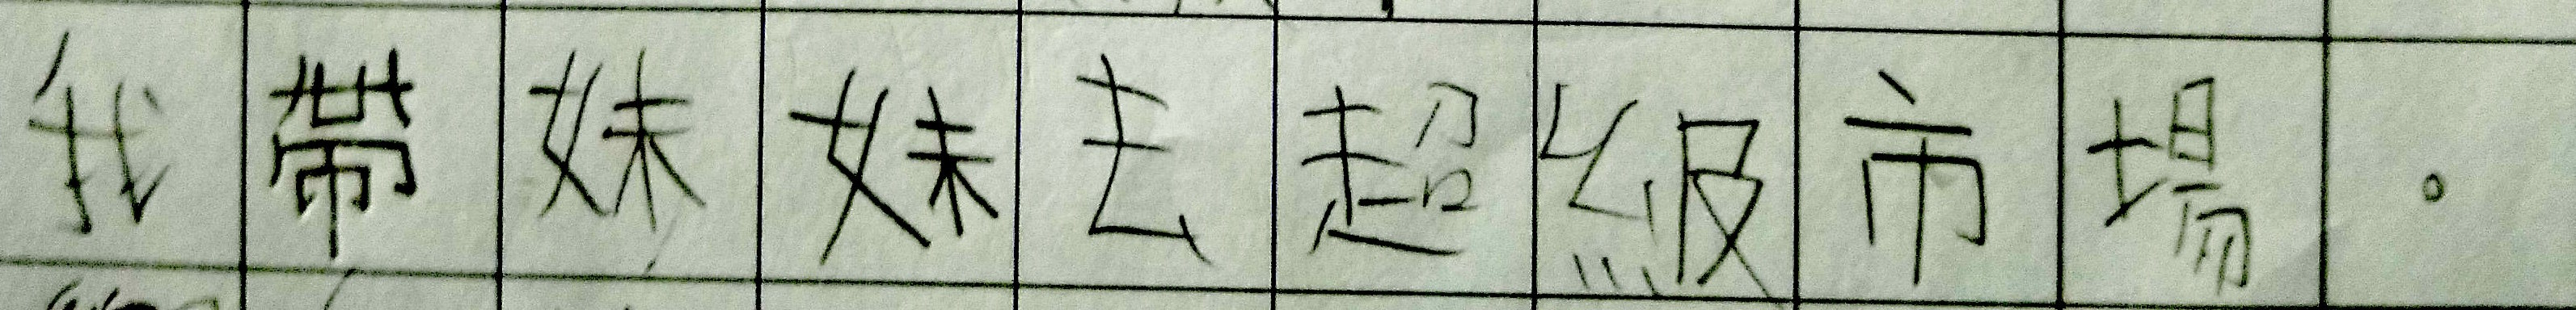 我帶妹妹去超級市場。